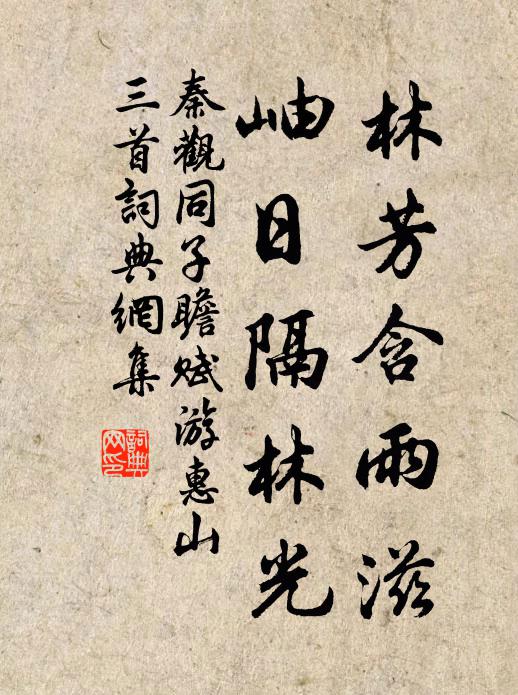 林芳含雨滋
岫日隔林光
秦觀同子瞻賦游惠山
三首詞典網集
詞典
网印